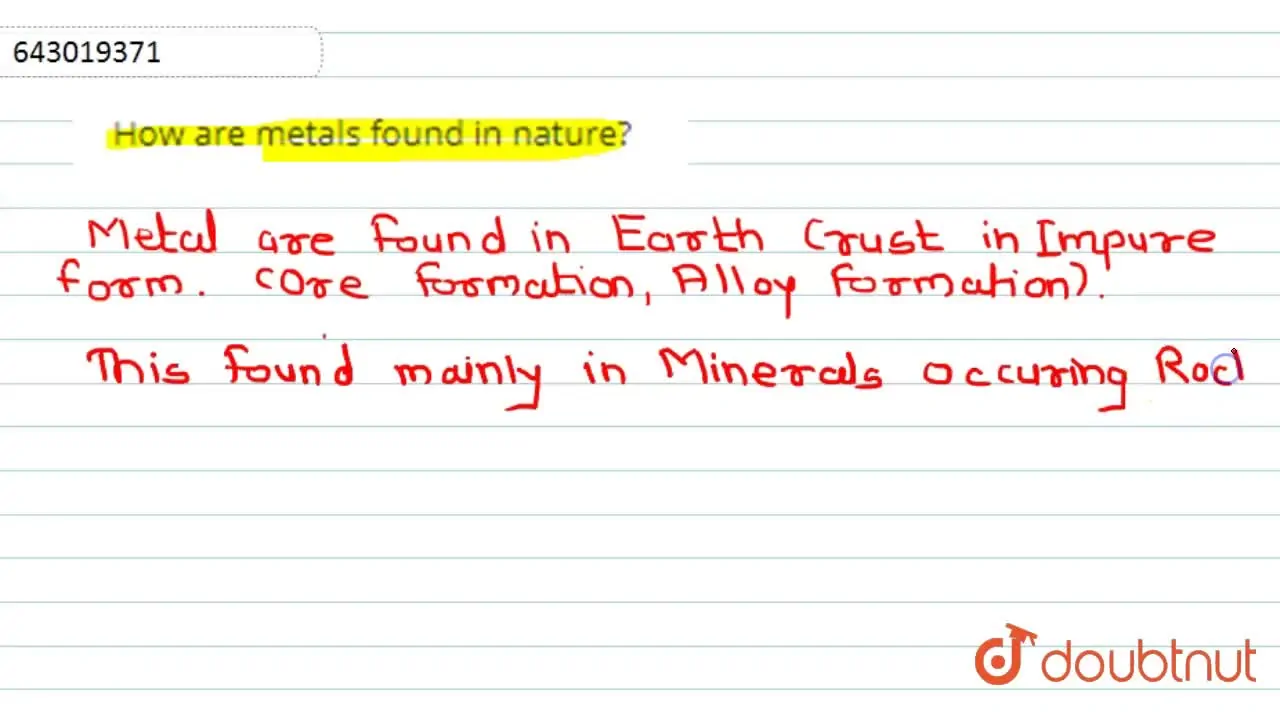 643019371
How are metals found in nature?
Metal are found in Earth Crust in Impure
form. (Ore formation, Alloy formation).
This found mainly in Minerals occuring
doubtnut